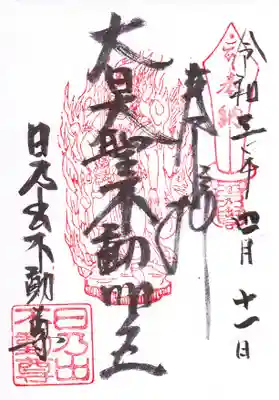 令和三年四月十一日
奉拝
大日大聖不動明王
日乃出不動尊
日乃出
不動尊